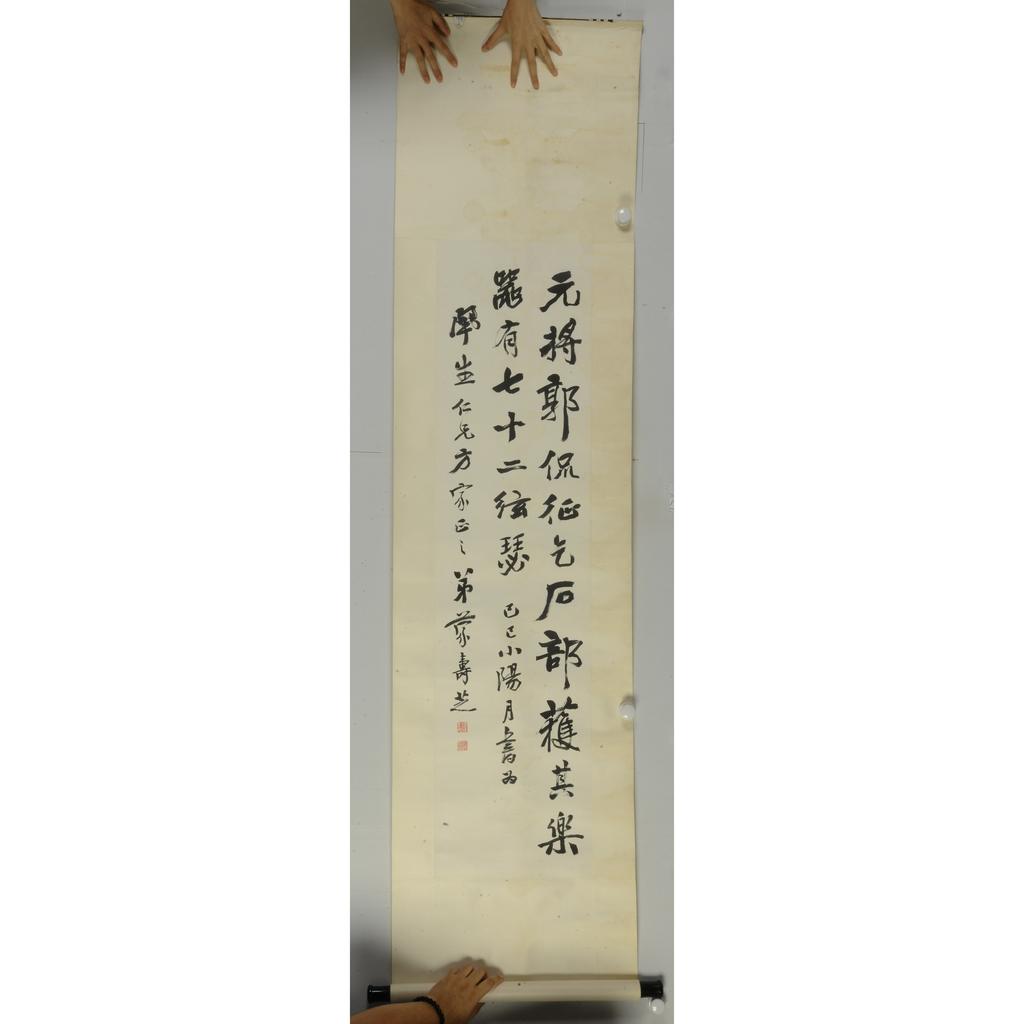 元将郭侃征乞石部获其樂
器有七十二弦瑟 己巳小陽月書为
生仁兄方家正之 弟蒙壽芝